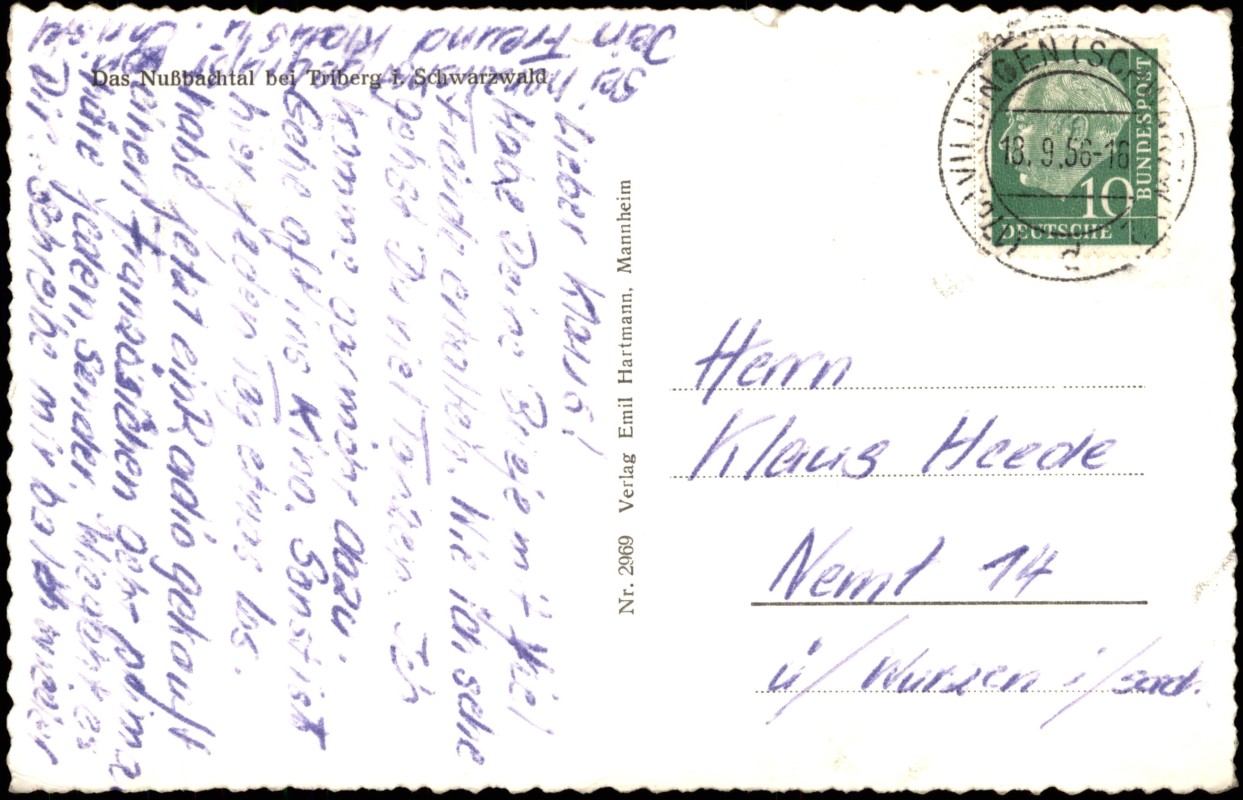 Das Nußbachtal bei Triberg i. Schwarzwald
Lieber Klaus!
Habe Deine Briefe mit viel
Freude erhalten. Wie ich sehe
gehst Du viel Tanzen. Ich
komme gar nicht dazu.
Gehe oft ins Kino. Sonst ist
hier jeden Tag etwas los.
habe jetzt ein Radio gekauft
einen Franzosischen geht prima
höre jeden Sender. Wie geht es
Dir. Schreibe mir bald wieder
Dein Freund Klaus
Nr. 2969 Verlag Emil Hartmann, Mannheim
VILLINGEN (SCHWARZW)
18. 9. 56-16
10
DEUTSCHE
BUNDESPOST
Herrn
Klaus Heede
Nemt 14
ü/ Wurzen i/